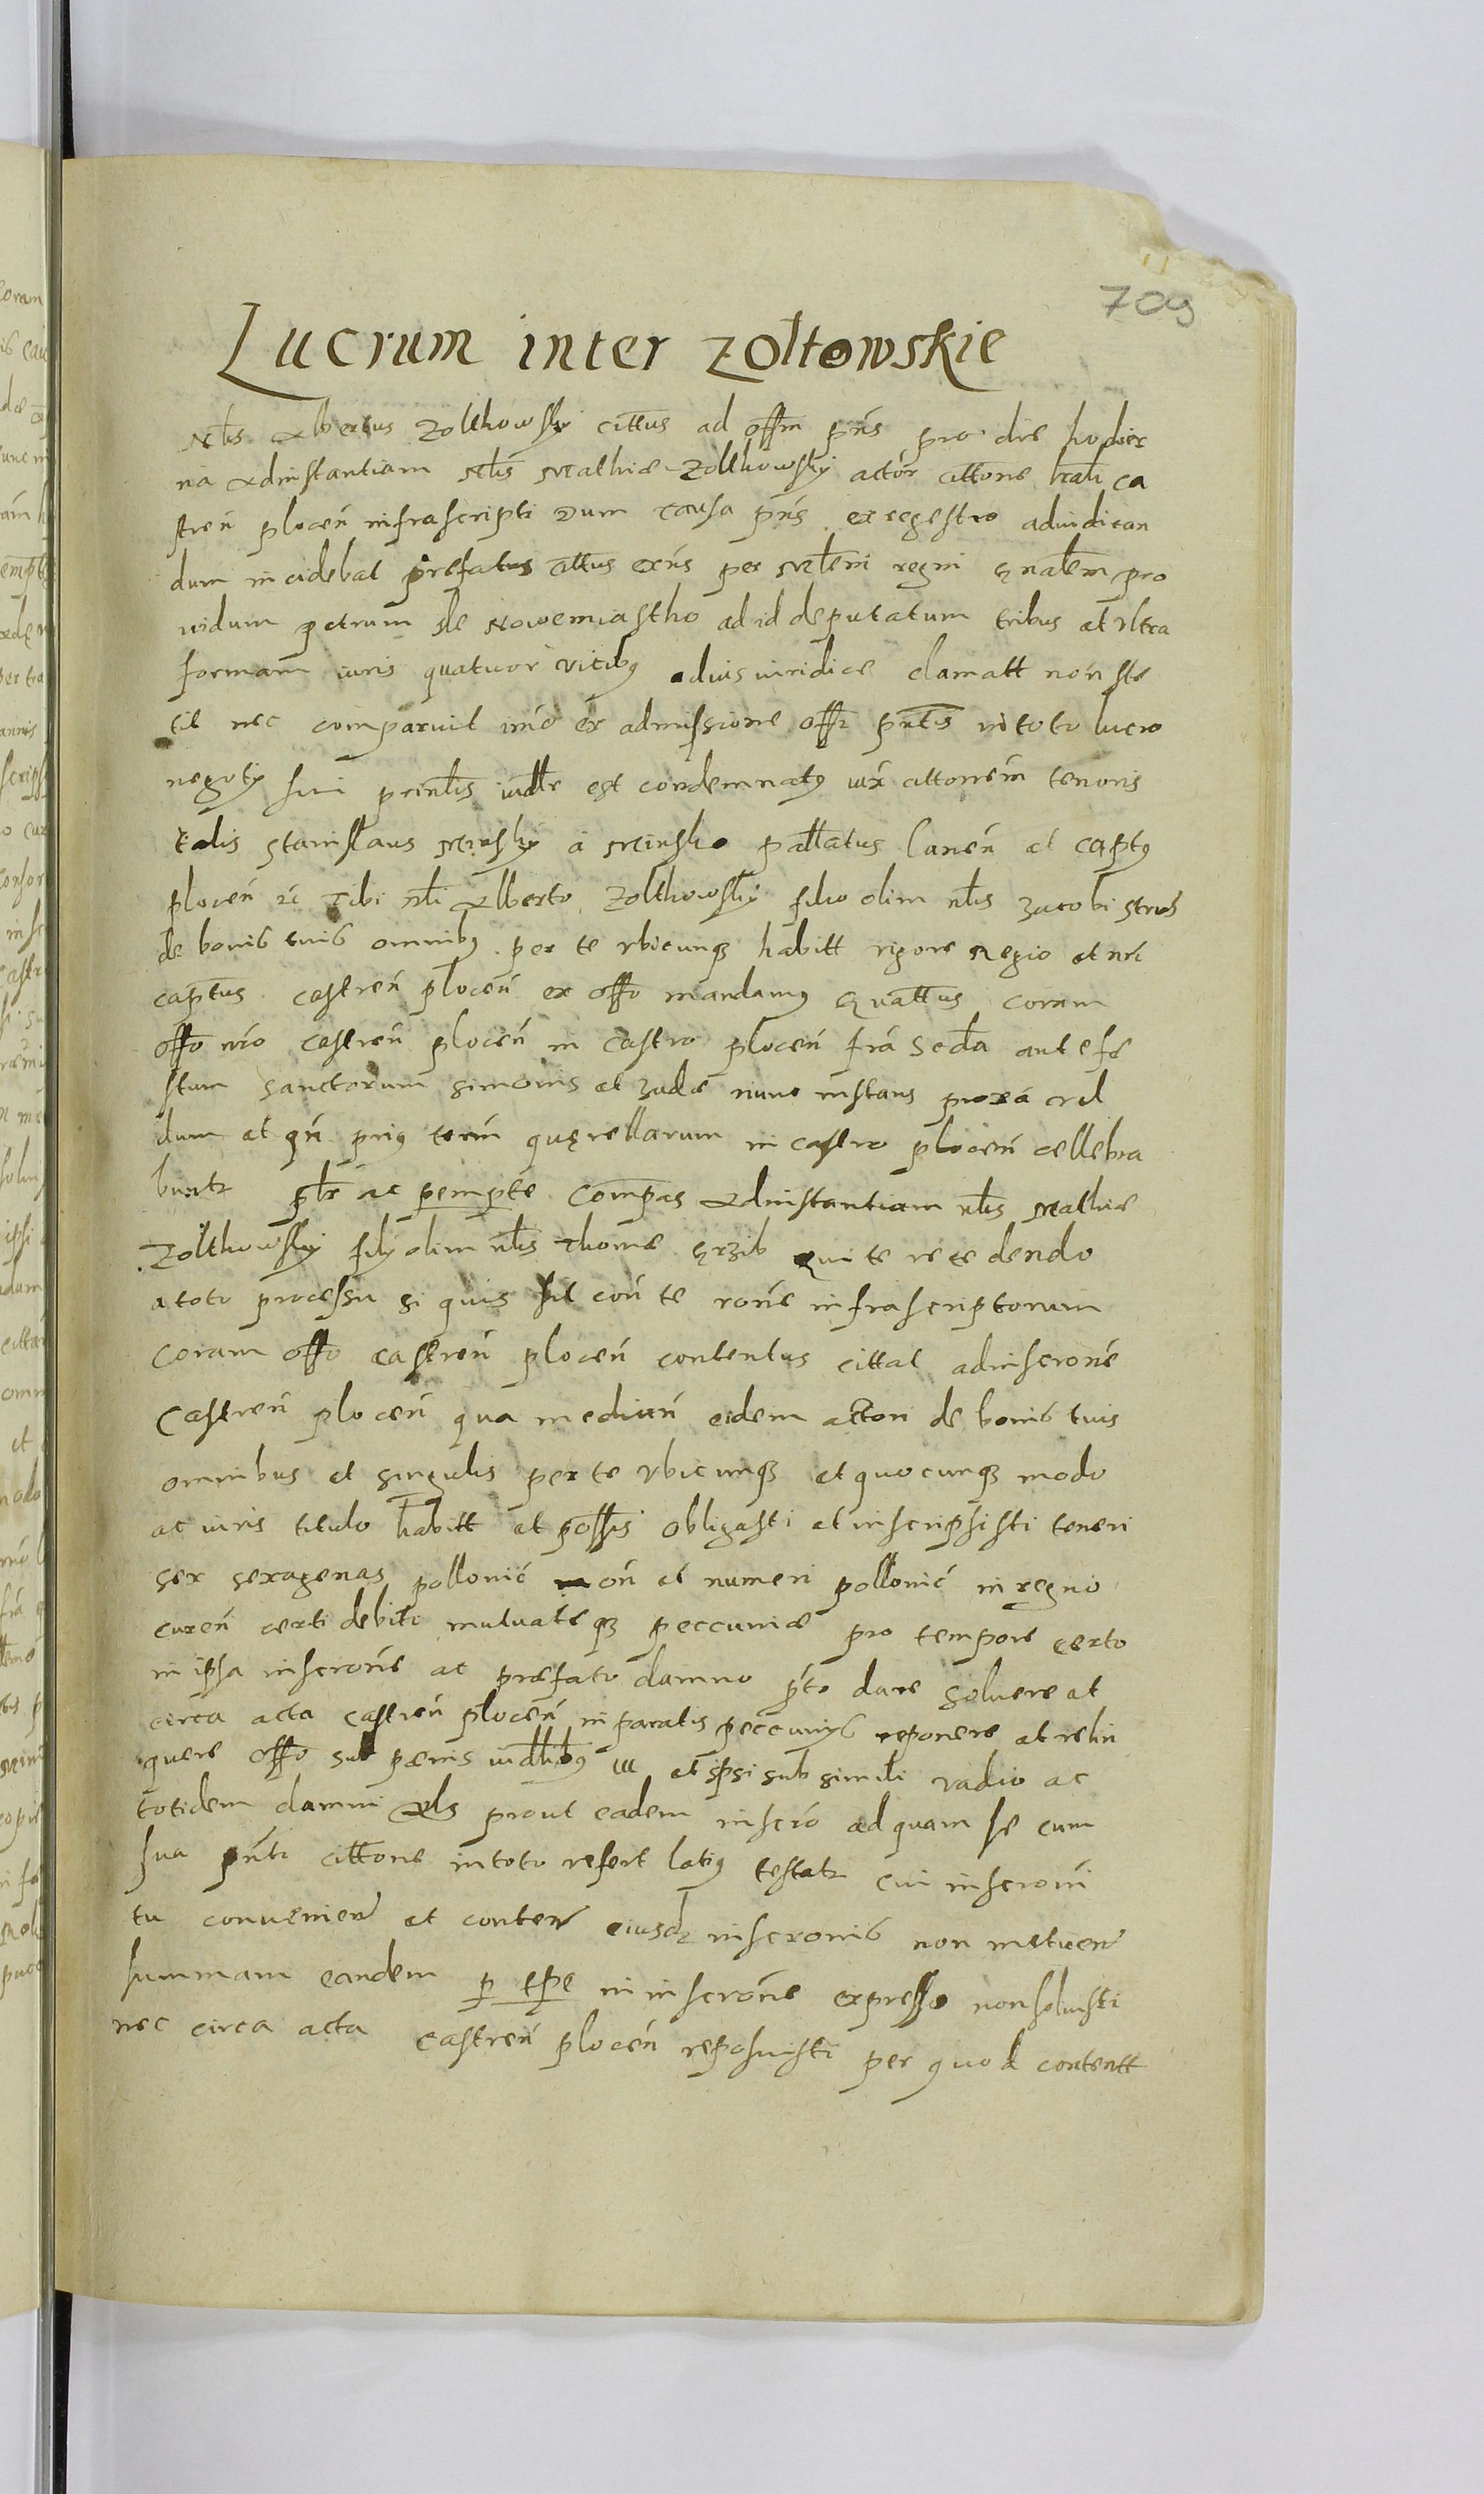 709
Lucrum inter Zołtowskie
Nłis Albertus Zolthowsky cittus ad offm pńs pro die hodier
na Adinstantiam Nłis Mathiæ Zolthowsky actor cittone lrali ca
streń plocen infrascripti Dum causa pńs ex regestro adiudican
dum incidebat præfatus cittus exńs per Mełem regni gnałem pro
vidum petrum de Nowemiastho ad id deputatum tribus et vltra
formam iuris quatuor vicibꝫ adius iuridice clamatt non ste
tit nec comparuit imo ex admissione offi pntis in toto lucro
negoty sui prinłis iudłr est condemnatꝫ iux cittonem tenoris
talis Stanislaus Minsky a Minsko pallatus Lanceń et captꝫ
plocen zc Tibi nłi Alberto Zolthowsky filio olim nłis Jacobi Strus
de bonis tuis omnibꝫ per te vbicunqꝫ habitt rigore Regio et nrî
captus castreń plocen ex offo mandamꝫ Quattus coram
offo nrô castreń plocen in castro plocen fra Scda ante fe
stum Sanctorum Simonis et Judæ nunc instans proxa ad
dum et qn priꝫ term quęrellarum in castro plocen cellebra
buntr płr ac pempte compas Adinstantiam nłis Mathiæ
Zolthowsky fily olim nłis Thomæ Grzib Qui te recedendo
a toto processu si quis sit con te rone infrascriptorum
coram offo castreń plocen contentus cittat ad inscrone
Castreń plocen qua medium eidem actori de bonis tuis
omnibus et singulis per te vbicunqꝫ et quocunqꝫ modo
ac iuris titulo habitt et possis obligasti et inscripsisti teneri
sex sexagenas pollonic mon et numeri pollonic in regno
curen certi debiti mutuateqꝫ peccuniæ pro tempore certo
in ipsa inscrone ac præfato damno pto dare soluere et
circa acta castreń plocen in paratis peccunys reponere et relin
quere offo sub pænis iudłibꝫ III et ipsi sub simili vadio ac
totidem damni Als prout eadem inscro ad quam se cum
sua pnti cittone in toto refert latiꝫ testatr cui inscroni
tu conuenien et conten eiusdꝫ inscronis non metuen
summam eandem p tpe in inscrone expresso non soluisti
nec circa acta castreń plocen reposuisti per quod contentt